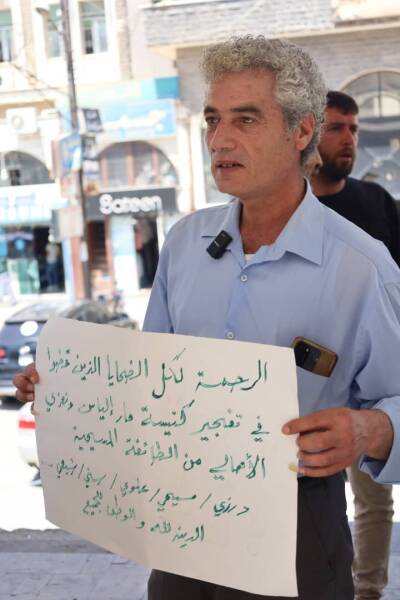 Sateen
الرحمة لكل الضحايا الذين قضوا
في تفجير كنيسة مار الياس ونعزي
الأهالي من الطائفة المسيحية
درزي / مسيحي / علوي / سني / شيعي ...
الدين لله والوطن للجميع